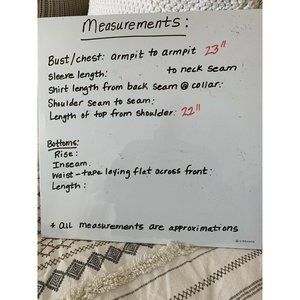 Measurements:
Bust/chest: armpit to armpit 23"
Sleeve length: to neck seam
Shirt length from back seam @ collar:
Shoulder seam to seam:
Length of top from shoulder: 22"
Bottoms:
Rise:
Inseam:
Waist - tape laying flat across front:
Length:
* all measurements are approximations